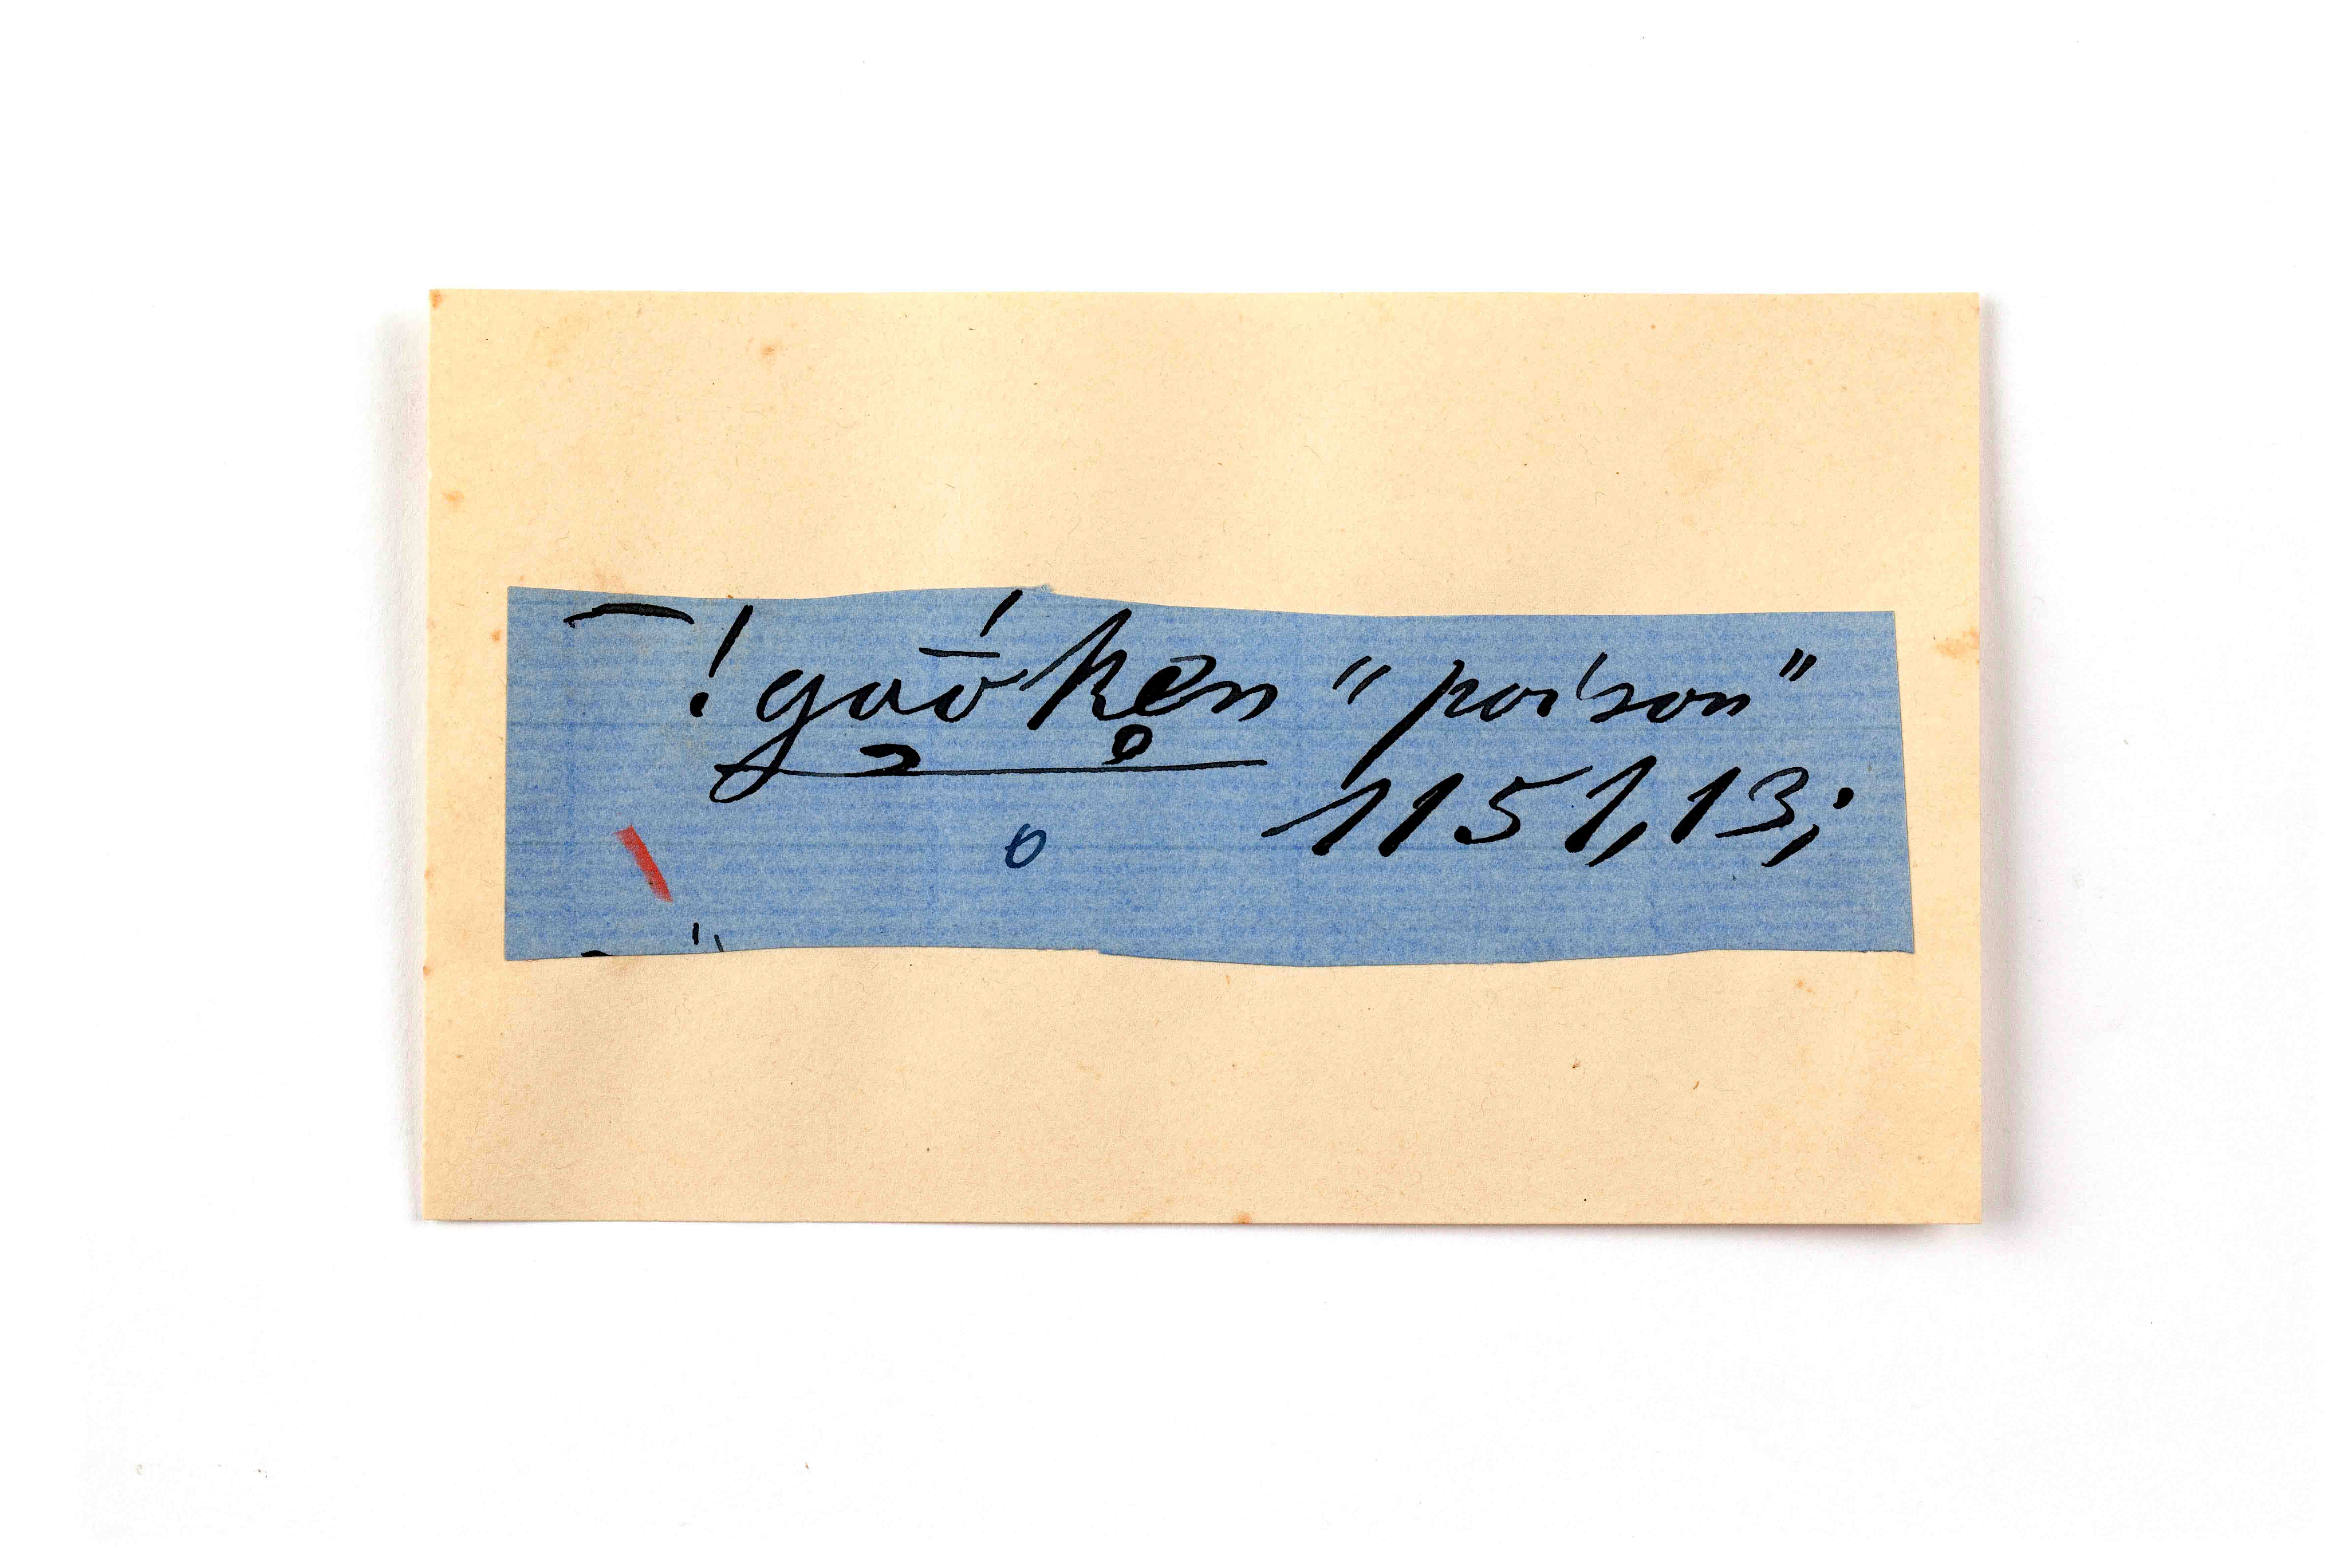 ‾!gaó̄ken "poison"
1151,13;
o